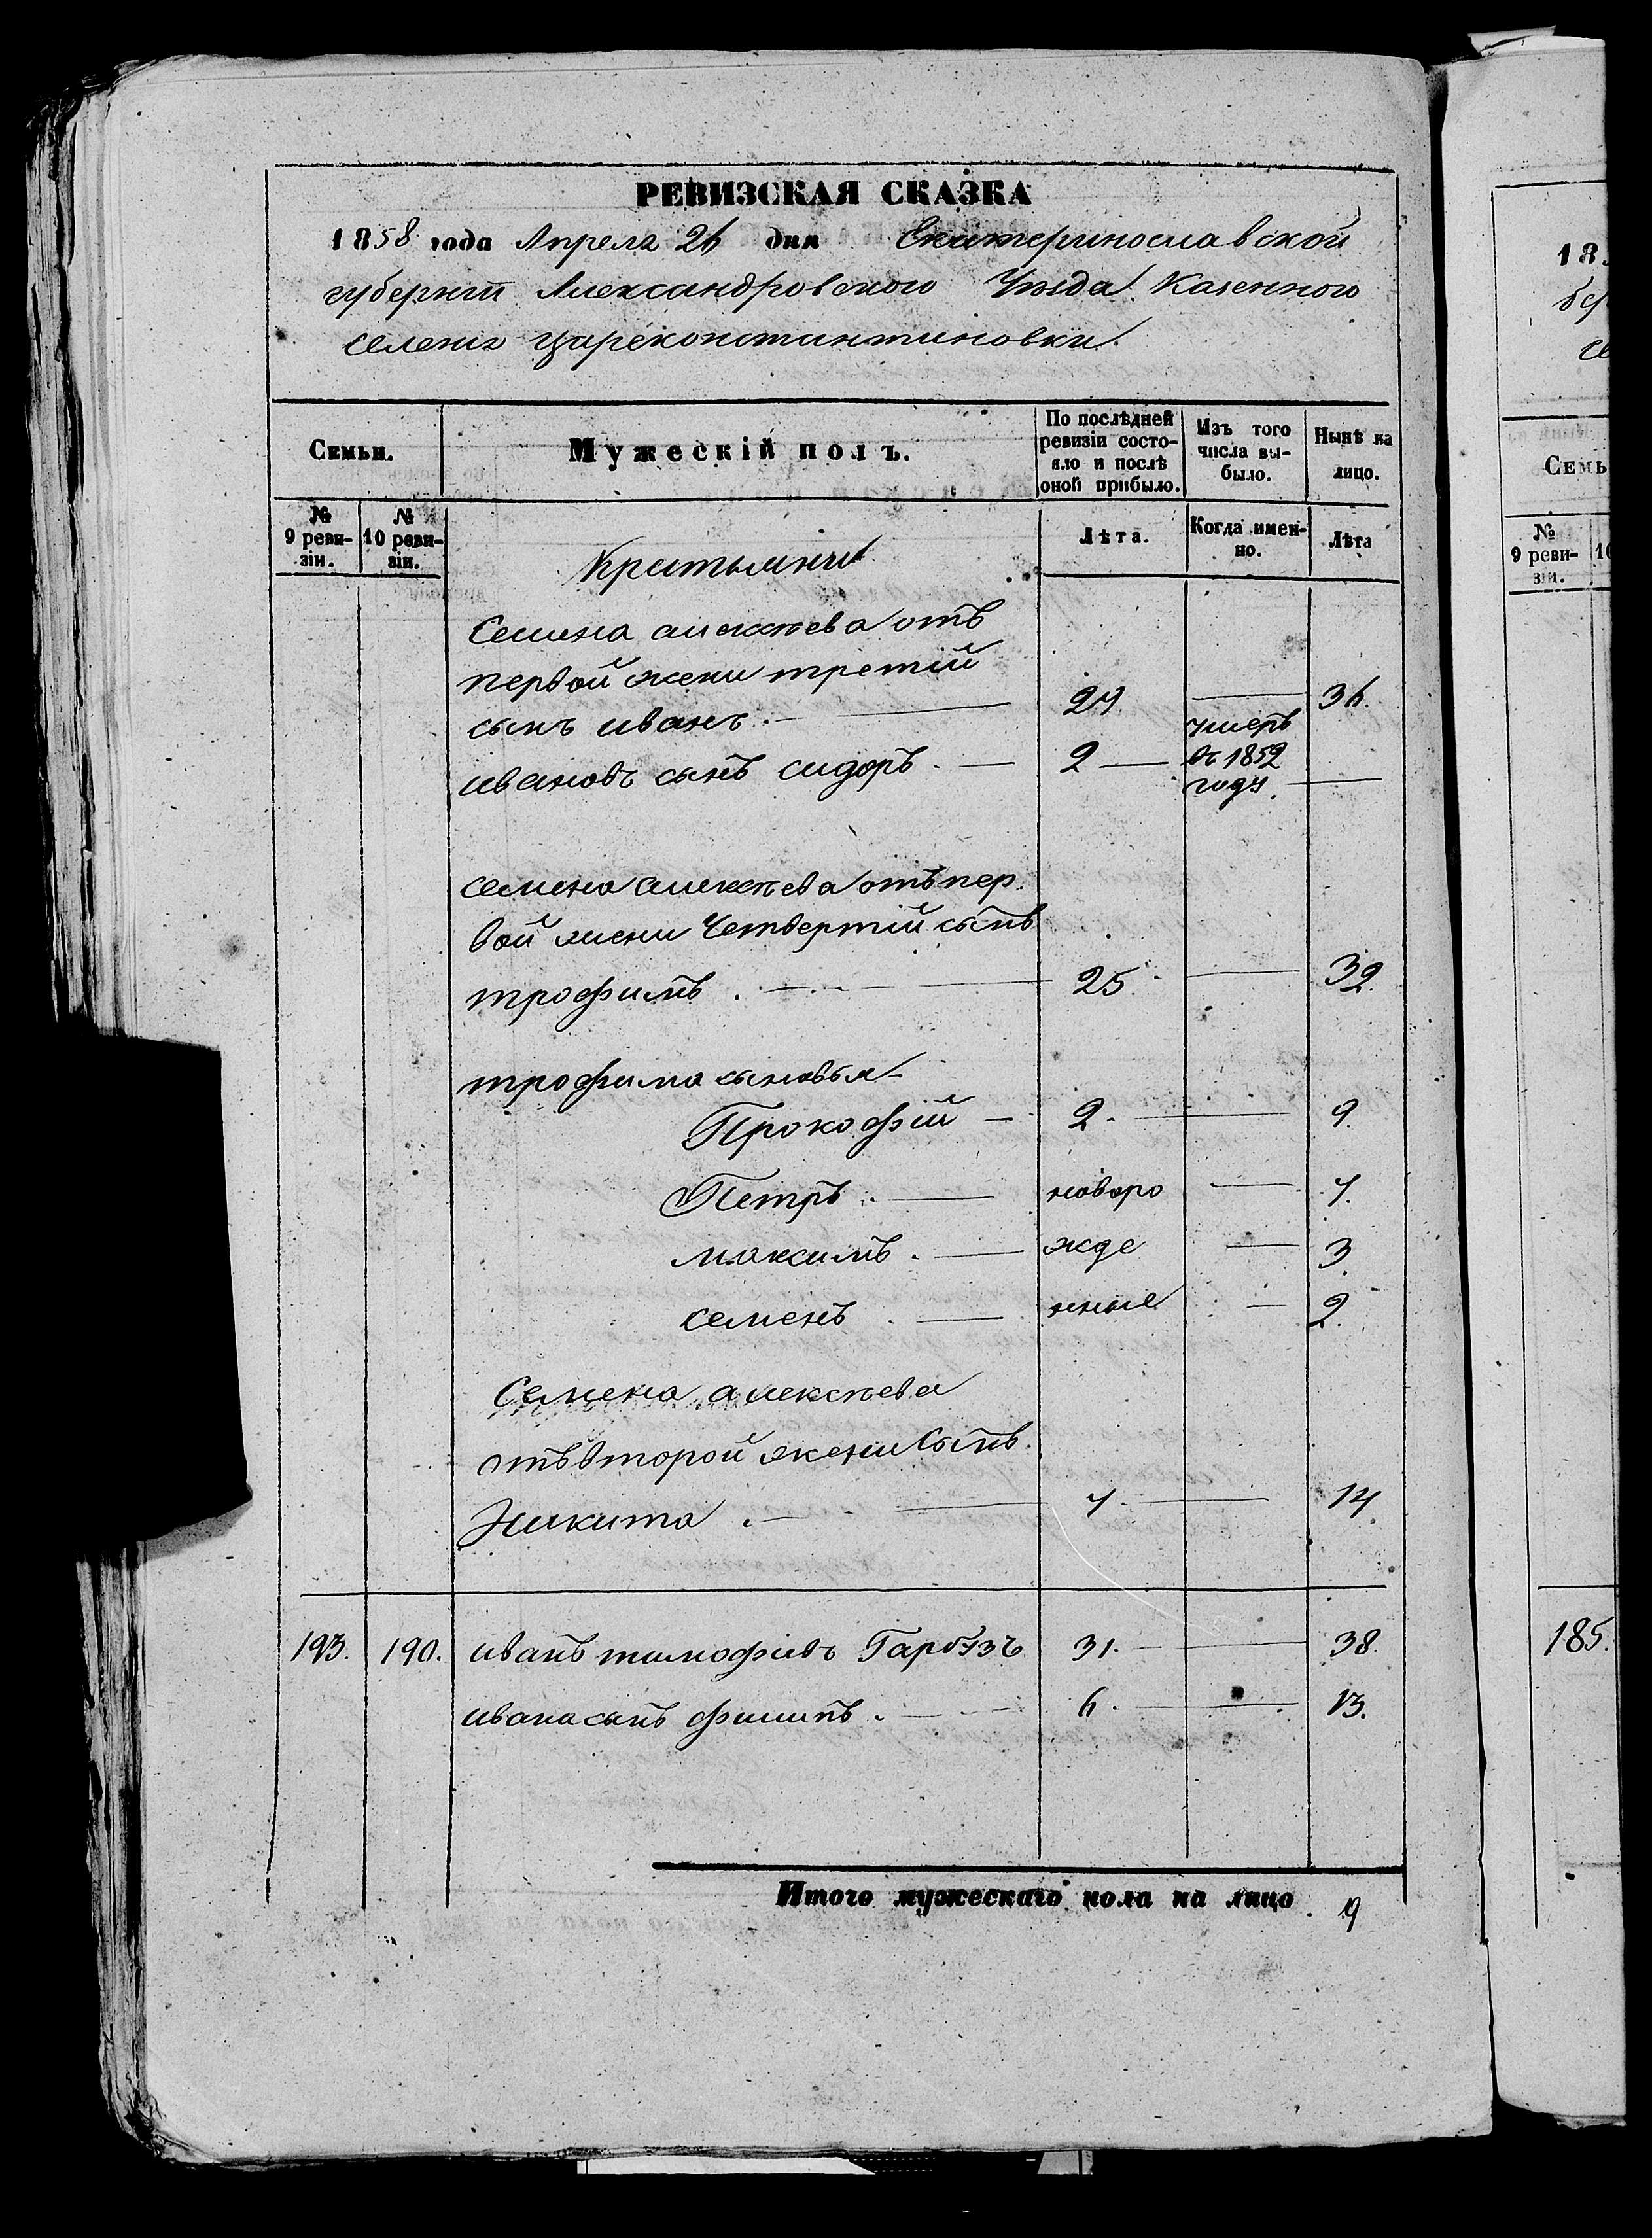 РЕВИЗСКАЯ СКАЗКА
1858 года Апреля 26 дня Екатеринославской
губерніи Александровского Уѣзда Казенного
селенія Цареконстантиновки.
Семьи. Мужескій полъ. По послѣдней ревизіи состояло и послѣ оной прибыло. Изъ того числа выбыло. Нынѣ на лицо.
№ 9 ревизіи. № 10 ревизіи. Лѣта. Когда именно. Лѣта
Семена алексѣева отъ
первой жени третій
сынъ иванъ. 29. 36.
ивановъ сынъ сидоръ. 2 умеръ въ 1852 году.
семена алексѣева отъ пер
вой жени Четвертій сынъ
трофимъ. 25. 32.
трофима сыновья
Прокофій 2. 9.
Петръ. новоро 7.
максимъ. жде 3.
семенъ. нные 2.
Семена алексѣева
отъ второй жени Сынъ.
Никита. 7. 14
193. 190. иванъ тимофѣевъ Гарбузъ 31. 38.
ивана сынъ филипъ. 6. 13.
Итого мужескаго пола на лицо. 9
18
се
Семь
№ 9 ревизіи. 10
185.